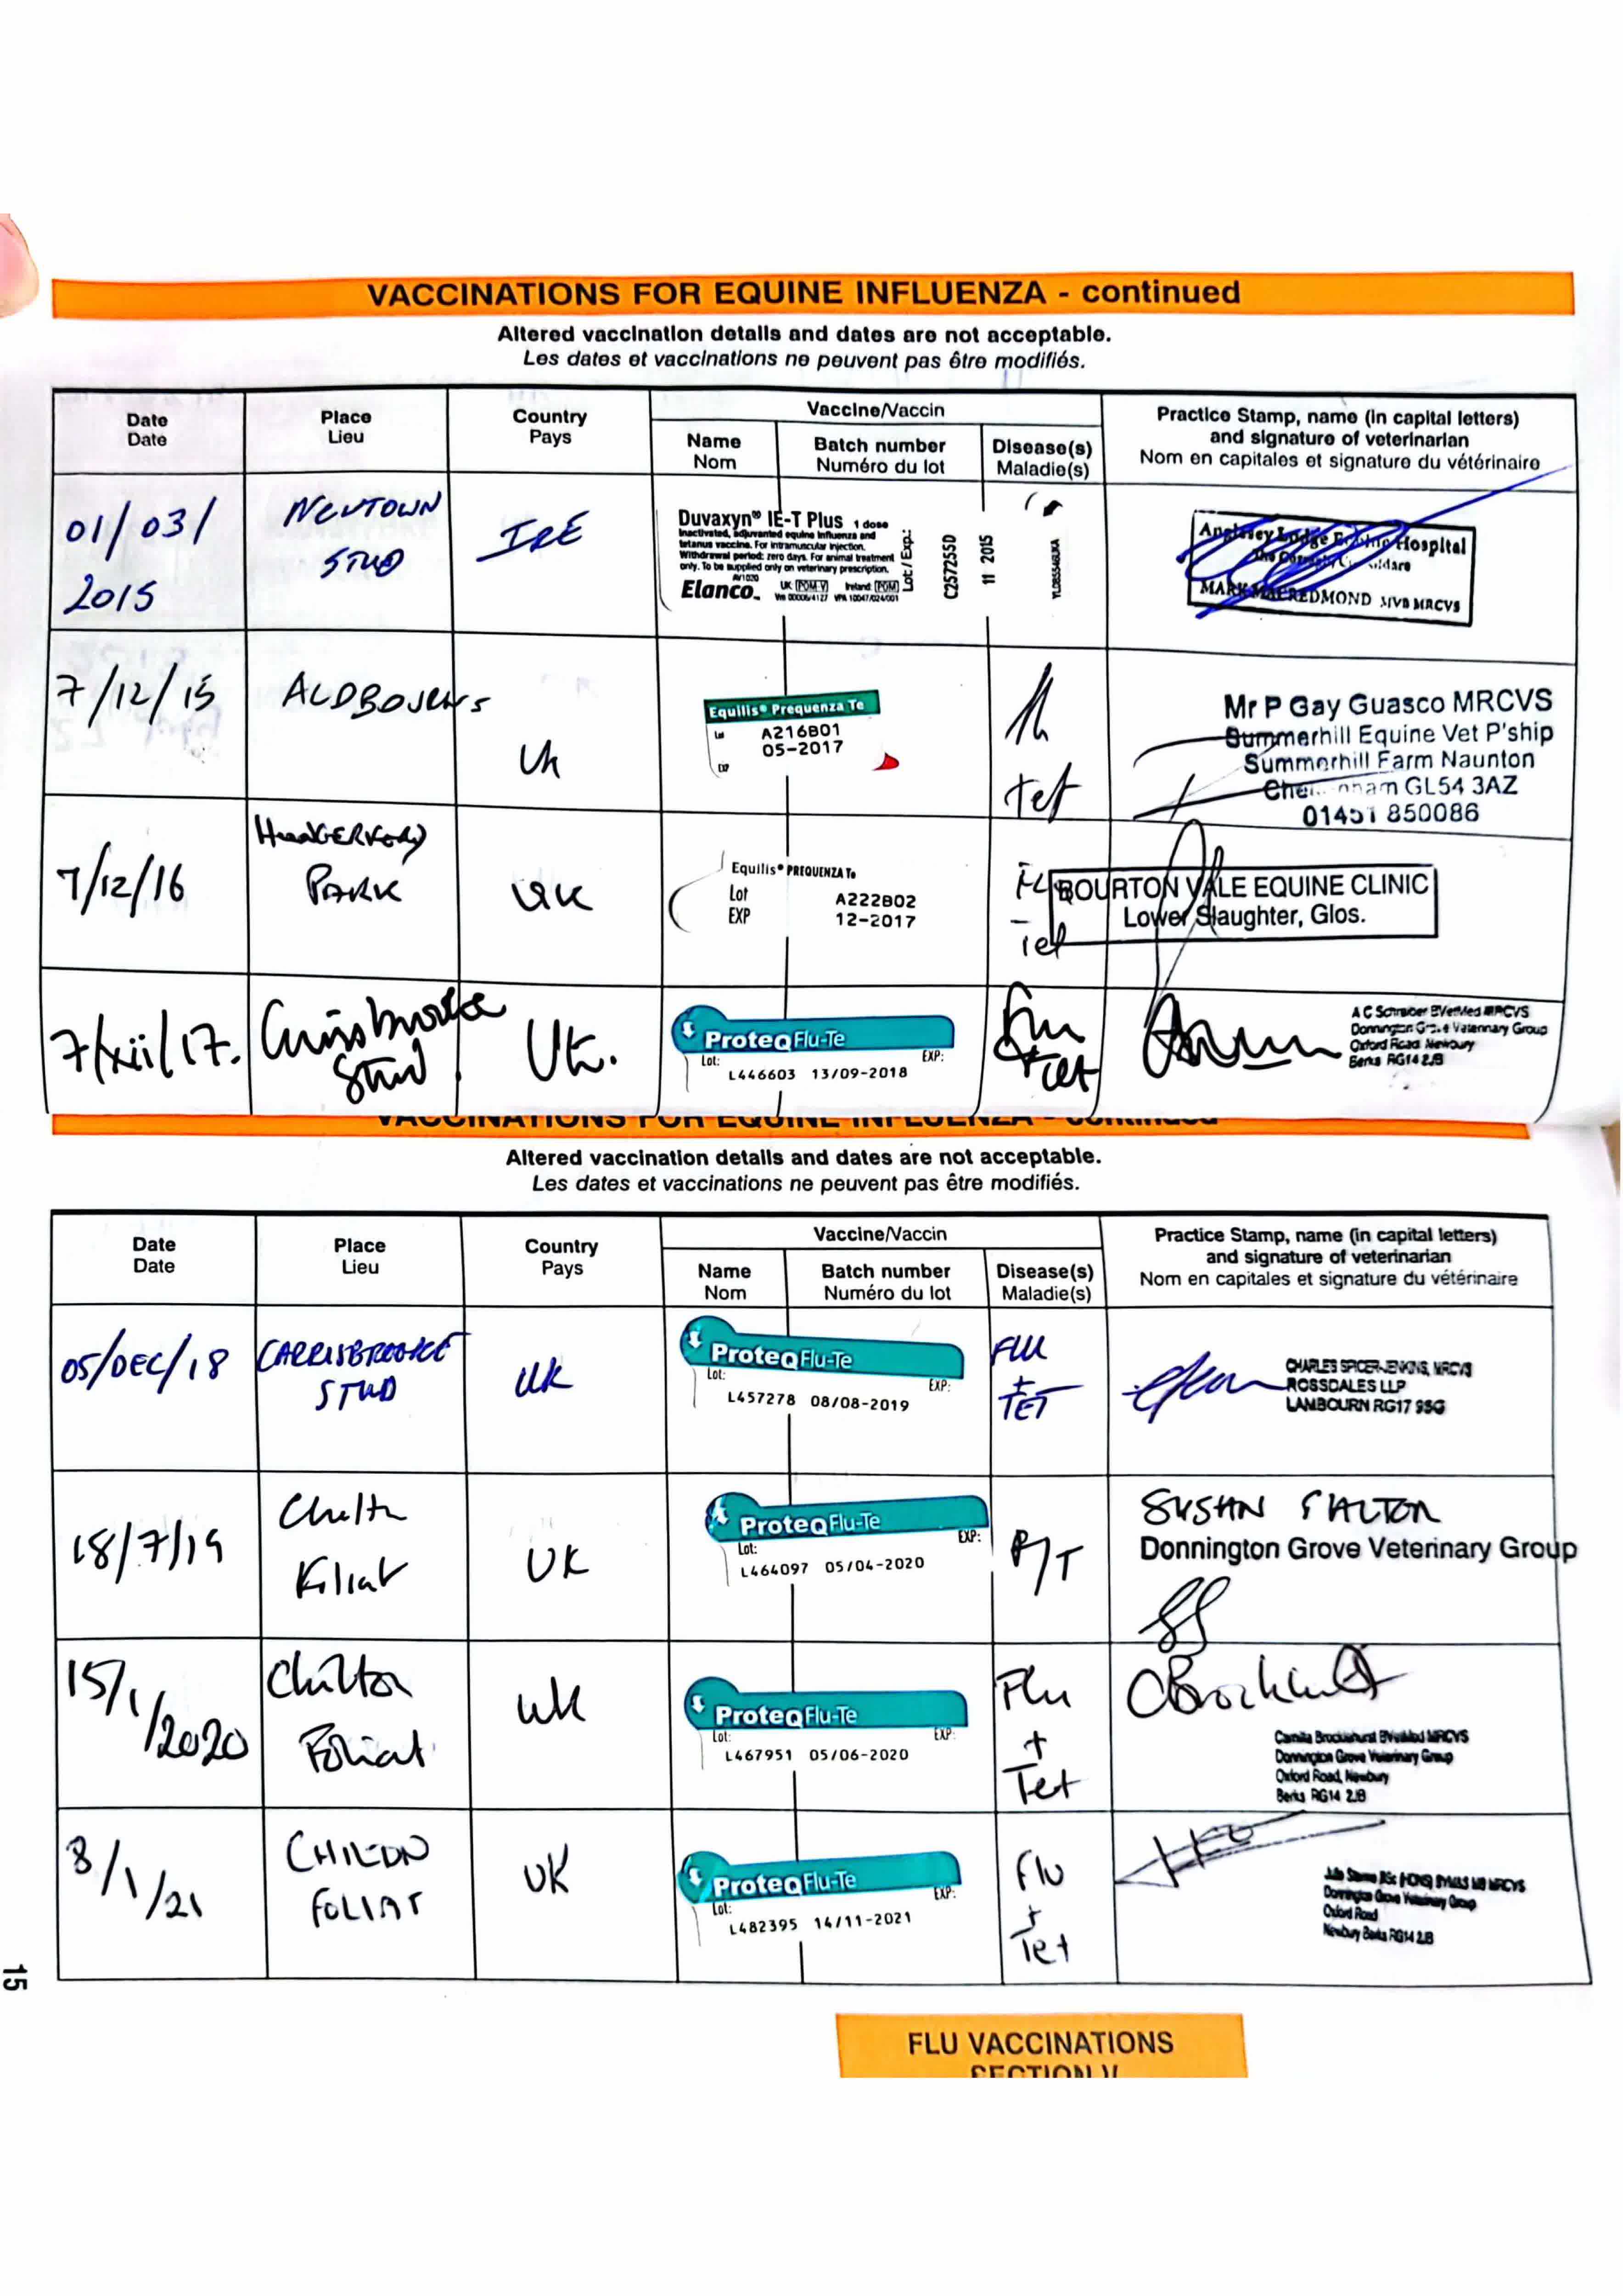 VACCINATIONS FOR EQUINE INFLUENZA - continued
Altered vaccination details and dates are not acceptable.
Les dates et vaccinations ne peuvent pas être modifiés.
Date
Date
Place
Lieu
Country
Pays
Vaccine/Vaccin
Name
Nom
Batch number
Numéro du lot
Disease(s)
Maladie(s)
Practice Stamp, name (in capital letters)
and signature of veterinarian
Nom en capitales et signature du vétérinaire
01/03/
2015
NEWTOWN
STUD
IRE
Duvaxyn® IE-T Plus 1 dose
Inactivated, adjuvanted equine influenza and
tetanus vaccine. For intramuscular injection.
Withdrawal period: zero days. For animal treatment
only. To be supplied only on veterinary prescription.
AV1020
Elanco
UK POM-V Ireland POM
Vm 00006/4127 VPA 10047/024/001
Lot / Exp.:
C257255D
11 2015
Anglesey Lodge Equine Hospital
The Curragh, Co. Kildare
MARK REDMOND MVB MRCVS
7/12/15
UK
Equilis® Prequenza Te
Lot
A216B01
05-2017
EXP
Tet
Mr P Gay Guasco MRCVS
Summerhill Equine Vet P'ship
Summerhill Farm Naunton
Cheltenham GL54 3AZ
01451 850086
7/12/16
HUNGERFORD
PARK
UK
Equilis® PREQUENZA Te
Lot A222B02
EXP 12-2017
Tet
BOURTON VALE EQUINE CLINIC
Lower Slaughter, Glos.
7/xii/17.
Stud
UK.
ProteqFlu-Te
Lot: EXP:
L446603 13/09-2018
Flu
+ Tet
A C Schreiber BVetMed MRCVS
Donnington Grove Veterinary Group
Oxford Road Newbury
Berks RG14 2JB
VACCINATIONS FOR EQUINE INFLUENZA - continued
Altered vaccination details and dates are not acceptable.
Les dates et vaccinations ne peuvent pas être modifiés.
Date
Date
Place
Lieu
Country
Pays
Vaccine/Vaccin
Name
Nom
Batch number
Numéro du lot
Disease(s)
Maladie(s)
Practice Stamp, name (in capital letters)
and signature of veterinarian
Nom en capitales et signature du vétérinaire
05/DEC/18
CARRISBROOKE
STUD
UK
ProteqFlu-Te
Lot: EXP:
L457278 08/08-2019
FLU
+
TET
CHARLES SPICER-JENKINS, MRCVS
ROSSDALES LLP
LAMBOURN RG17 9SG
18/7/19
UK
ProteqFlu-Te
Lot: EXP:
L464097 05/04-2020
F/T
SUSAN SALTER
Donnington Grove Veterinary Group
15/1/2020
Chilton
Foliat
UK
ProteqFlu-Te
Lot: EXP:
L467951 05/06-2020
Flu
+
Tet
CBrocklehurst
Camilla Brocklehurst BVetMed MRCVS
Donnington Grove Veterinary Group
Oxford Road, Newbury
Berks RG14 2JB
8/1/21
CHILTON
FOLIAT
UK
ProteqFlu-Te
Lot: EXP:
L482395 14/11-2021
Flu
+
Tet
Donnington Grove Veterinary Group
Oxford Road
Newbury Berks RG14 2JB
15
FLU VACCINATIONS
SECTION V